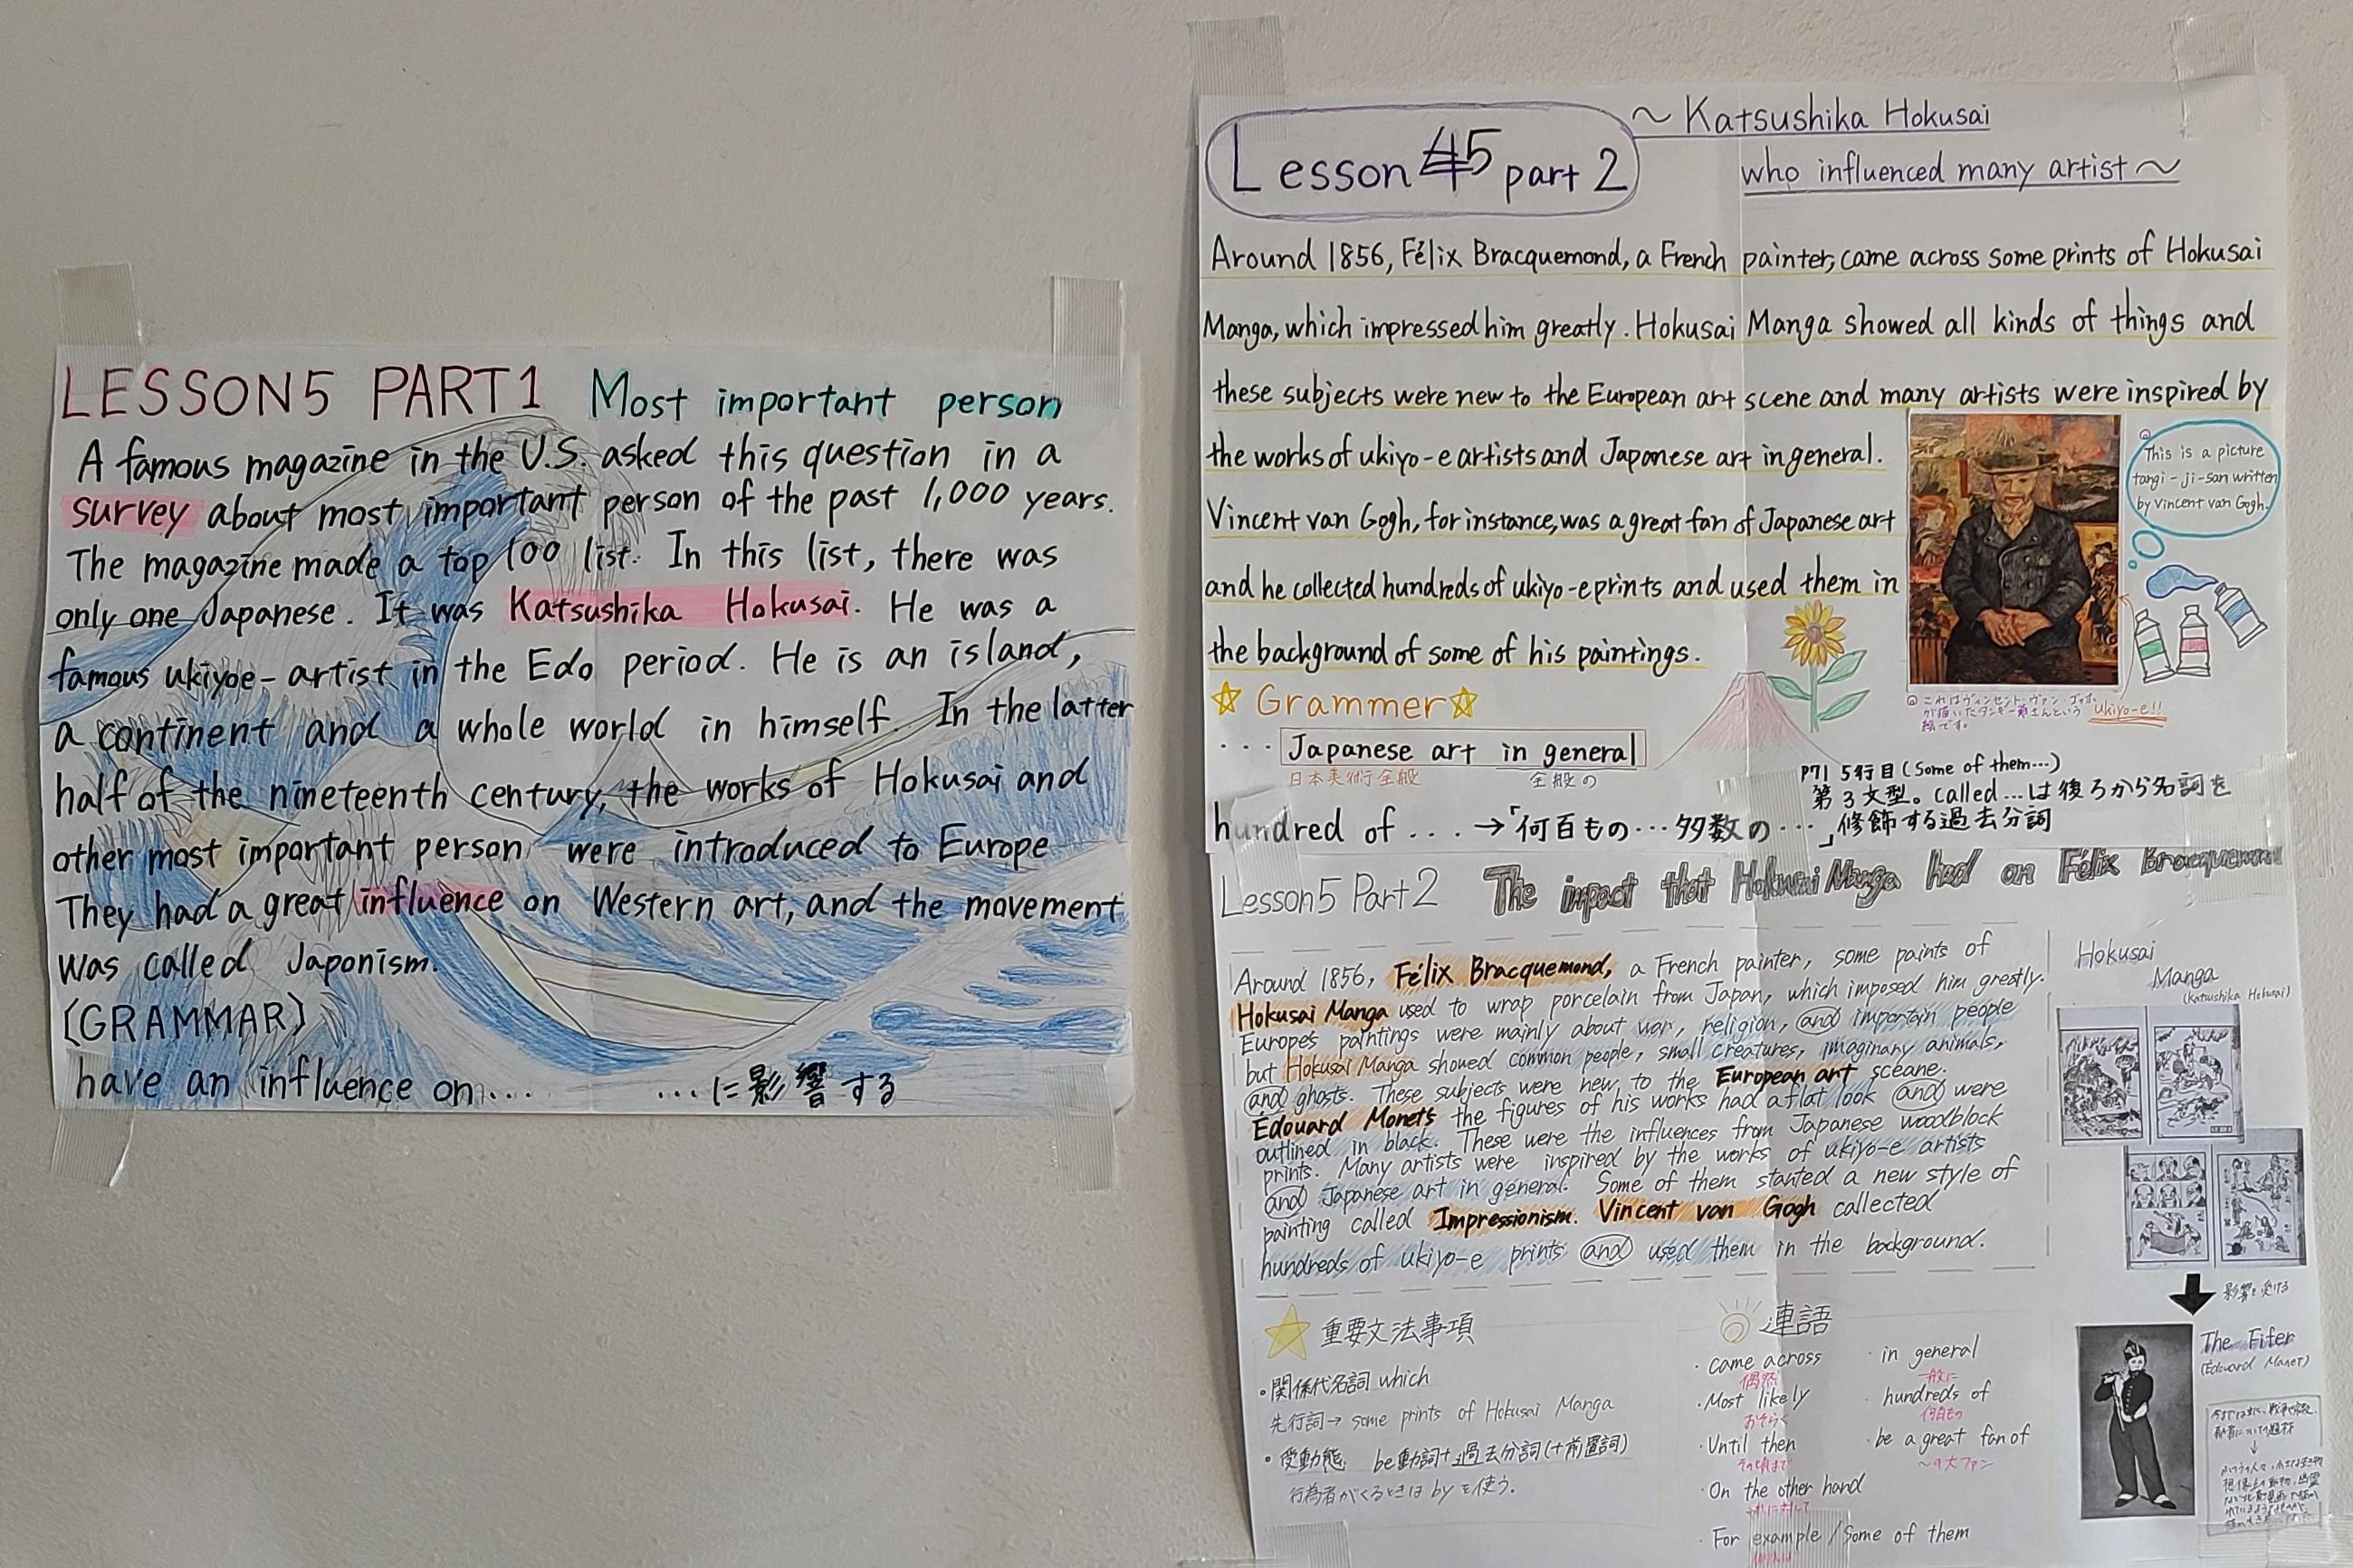 LESSON5 PART1 Most important person
A famous magazine in the U.S. asked this question in a
survey about most important person of the past 1,000 years.
The magazine made a top 100 list. In this list, there was
only one Japanese. It was Katsushika Hokusai. He was a
famous ukiyoe- artist in the Edo period. He is an island,
a continent and a whole world in himself. In the latter
half of the nineteenth century, the works of Hokusai and
other most important person were introduced to Europe
They had a great influence on Western art, and the movement
was called Japonism.
(GRAMMAR)
have an influence on... ...に影響する
Lesson 45 part 2
~ Katsushika Hokusai
who influenced many artist ~
Around 1856, Félix Bracquemond, a French painter, came across some prints of Hokusai
Manga, which impressed him greatly. Hokusai Manga showed all kinds of things and
these subjects were new to the European art scene and many artists were inspired by
the works of ukiyo-e artists and Japanese art in general.
Vincent van Gogh, for instance, was a great fan of Japanese art
and he collected hundreds of ukiyo-e prints and used them in
the background of some of his paintings.
This is a picture
tangi-ji-san written
by Vincent van Gogh.
これはヴィンセント・ヴァン・ゴッホ
が描いたタンギー爺さんという
絵です。
ukiyo-e!!
☆ Grammer ☆
... Japanese art in general
日本美術全般 全般の
hundred of .... →「何百もの…多数の…」
P71 5行目(Some of them…)
第3文型。called…は後ろから名詞を
修飾する過去分詞
Lesson5 Part2 The impact that Hokusai Manga had on Félix Bracquemond
Around 1856, Félix Bracquemond, a French painter, some paints of
Hokusai Manga used to wrap porcelain from Japan, which imposed him greatly.
Europe's paintings were mainly about war, religion, and important people
but Hokusai Manga showed common people, small creatures, imaginary animals,
and ghosts. These subjects were new, to the European art sceane.
Édouard Monet's the figures of his works had a flat look and were
outlined in black. These were the influences from Japanese woodblock
prints. Many artists were inspired by the works of ukiyo-e artists
and Japanese art in general. Some of them stanted a new style of
painting called Impressionism. Vincent van Gogh collected
hundreds of ukiyo-e prints and used them in the background.
Hokusai
Manga
(Katsushika Hokusai)
影響を受ける
The Fifer
(Édouard Manet)
☆ 重要文法事項
・関係代名詞 which
先行詞→ some prints of Hokusai Manga
・受動態 be動詞+過去分詞(+前置詞)
行為者がくるときは by を使う。
連語
・came across
偶然
・Most likely
おそらく
・Until then
その頃まで
・On the other hand
・For example / Some of them
・in general
一般に
・hundreds of
何百もの
・be a great fan of
~の大ファン